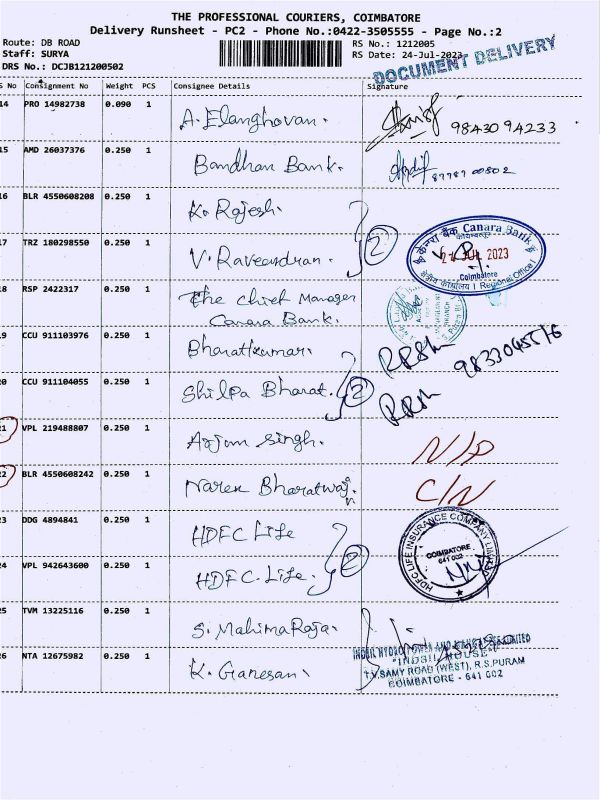 THE PROFESSIONAL COURIERS, COIMBATORE
Delivery Runsheet - PC2 - Phone No.:0422-3505555 - Page No.:2
Route: DB ROAD RS No.: 1212005
Staff: SURYA RS Date: 24-Jul-2023
DRS No.: DCJB121200502
DOCUMENT DELIVERY
S No Consignment No Weight PCS Consignee Details Signature
14 PRO 14982738 0.090 1 A. Elanghovan. 98430 94233
15 AMD 26037376 0.250 1 Bandhan Bank. 87787 00502
16 BLR 4550608208 0.250 1 K. Rajesh.
17 TRZ 180298550 0.250 1 V. Raveendran. 2
केनरा बैंक Canara Bank
कोयम्बत्तूर
JUL 2023
Coimbatore
क्षेत्रीय कार्यालय / Regional Office
18 RSP 2422317 0.250 1 The Chief Manager
Canara Bank.
19 CCU 911103976 0.250 1 Bharatkumar.
20 CCU 911104055 0.250 1 Shilpa Bharat. 2
21 VPL 219488807 0.250 1 Arjun Singh. N/P
22 BLR 4550608242 0.250 1 Naren Bharatwaj. C/N
23 DDG 4894841 0.250 1 HDFC Life
24 VPL 942643600 0.250 1 HDFC Life. 2
HDFC LIFE INSURANCE COMPANY LIMITED
COIMBATORE
641 002
25 TVM 13225116 0.250 1 S. Mahima Raja.
26 NTA 12675982 0.250 1 K. Ganesan.
"INDSIL HOUSE"
T.V.SAMY ROAD (WEST), R.S.PURAM
COIMBATORE - 641 002